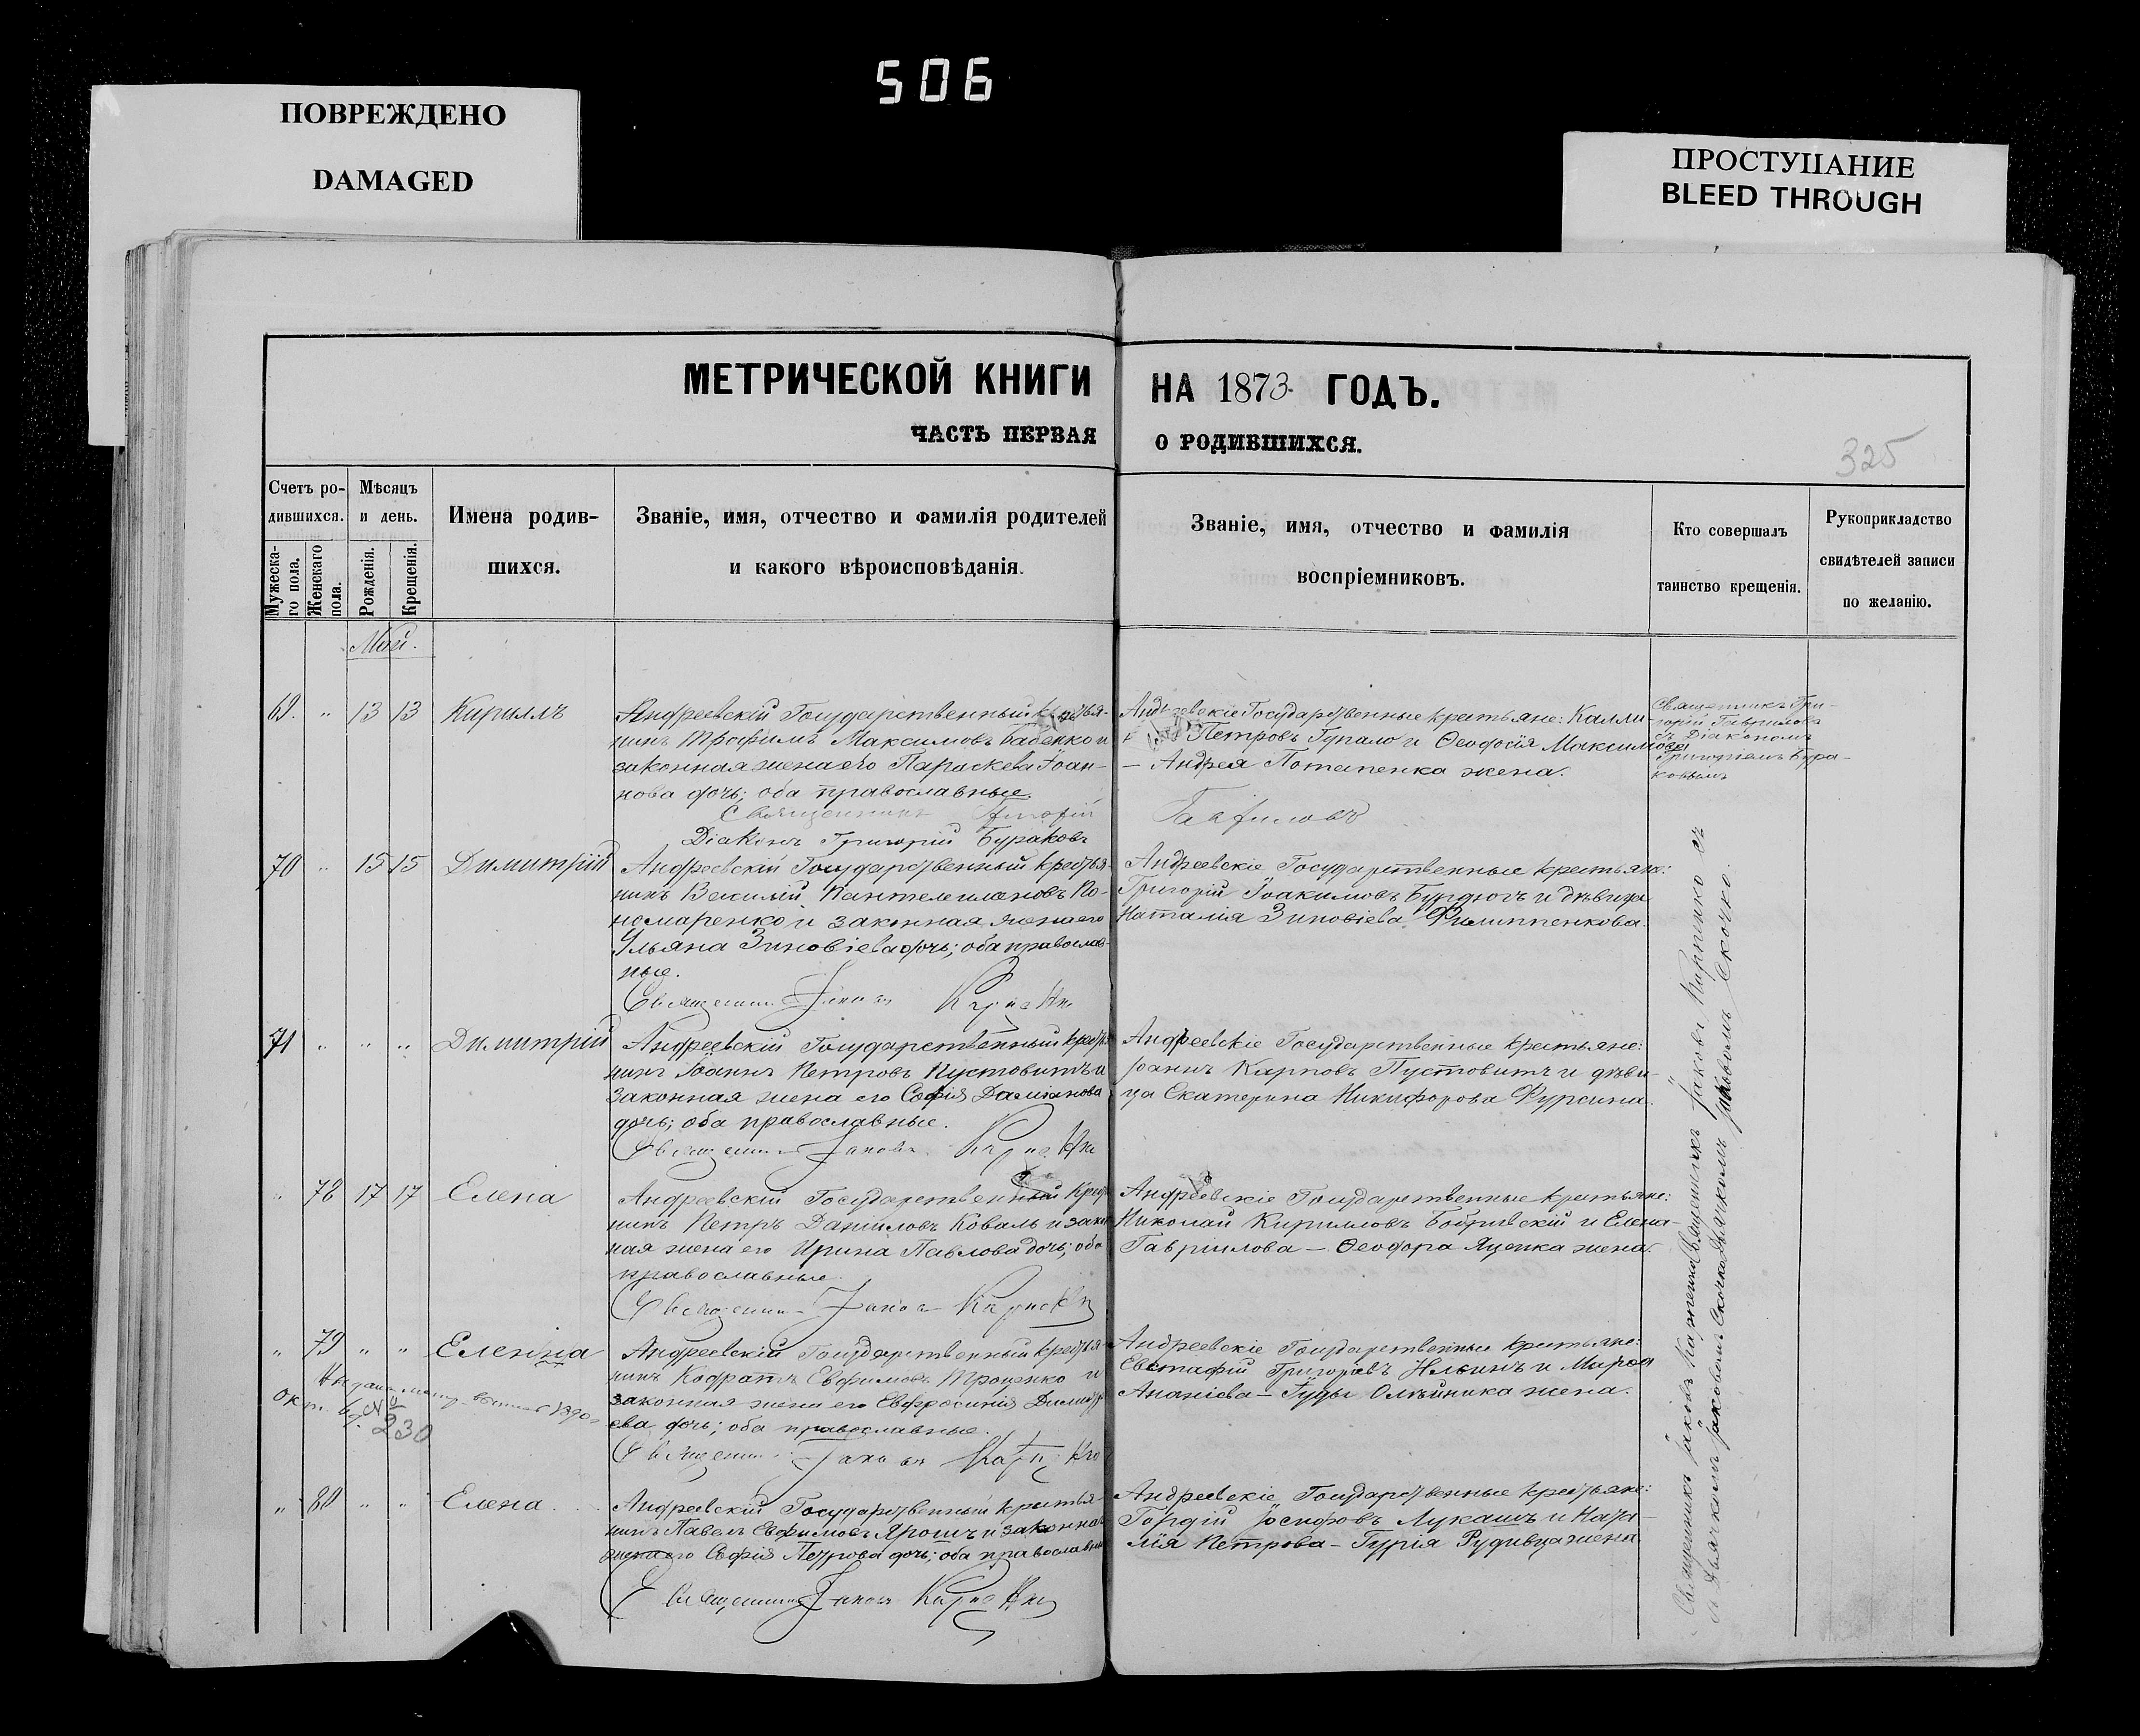 506
ПОВРЕЖДЕНО
DAMAGED
ПРОСТУПАНИЕ
BLEED THROUGH
МЕТРИЧЕСКОЙ КНИГИ НА 1873 ГОДЪ.
ЧАСТЬ ПЕРВАЯ О РОДИВШИХСЯ.
325
Счетъ ро-
дившихся.
Мужеска-
го пола.
Женскаго
пола.
Мѣсяцъ
и день.
Рожденія.
Крещенія.
Имена родив-
шихся.
Званіе, имя, отчество и фамилія родителей
и какого вѣроисповѣданія.
Званіе, имя, отчество и фамилія
воспріемниковъ.
Кто совершалъ
таинство крещенія.
Рукоприкладство
свидѣтелей записи
по желанію.
Май.
69. " 13 13 Кириллъ
Андреевскій Государственный крестья-
нинъ Трофимъ Максимовъ Бабенко и
законная жена его Параскева Іоан-
нова дочь; оба православные.
Священникъ Григорій Гавриловъ
Діаконъ Григорій Бураковъ
Андреевскіе Государственные крестьяне: Калли-
Петровъ Гупало и Ѳеодосія Максимова
— Андрея Потапенка жена.
Священникъ Гри-
горій Гавриловъ
съ Діакономъ
Григоріемъ Бура-
ковымъ
70 " 15 15 Димитрій
Андреевскій Государственный крестья-
нинъ Василій Пантелеимоновъ По-
номаренко и законная жена его
Ульяна Зиновіева дочь; оба православ-
ные.
Священникъ Іаковъ
Андреевскіе Государственные крестьяне:
Григорій Іоакимовъ Бурдюгъ и дѣвица
Наталія Зиновіева Филиппенкова.
71 " " " Димитрій
Андреевскій Государственный крестья
нинъ Іоаннъ Петровъ Пустовитъ и
законная жена его Софія Даміанова
дочь; оба православные.
Священникъ Іаковъ
Андреевскіе Государственные крестьяне:
Іоаннъ Карповъ Пустовитъ и дѣви-
ца Екатерина Никифорова Фурсина.
" 78 17 17 Елена
Андреевскій Государственный крестья
нинъ Петръ Даніиловъ Коваль и закон
ная жена его Ирина Павлова дочь; оба
православные.
Священникъ Іаковъ
Андреевскіе Государственные крестьяне:
Николай Кирилловъ и Елена
Гавріилова — Ѳеодора Яценка жена.
" 79 " " Елена
Андреевскій Государственный крестья-
нинъ Кодратъ Евфимовъ Троценко и
законная жена его Евфросинія Димитр
ева дочь; оба православные.
Священникъ Іаковъ
Андреевскіе Государственные крестьяне:
Евстафій Григорьевъ Ильинъ и Марѳа
Ананіева — Олѣйника жена.
1890
окт. №
230
" 80 " " Елена.
Андреевскій Государственный крестья-
нинъ Павелъ Евфимовъ Ярошъ и законна
жена его Софія Петрова дочь; оба православны
Священникъ Іаковъ
Андреевскіе Государственные крестьяне:
Гордій Іосифовъ Лукашъ и Ната-
лія Петрова — Гурія Рудивца жена.
Священникъ Іаковъ